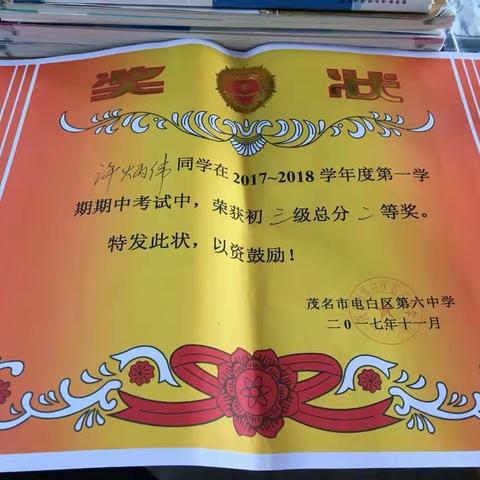 奖状
许炳伟同学在2017~2018学年度第一学
期期中考试中，荣获初三级总分二等奖。
特发此状，以资鼓励！
茂名市电白区第六中学
二0一七年十一月